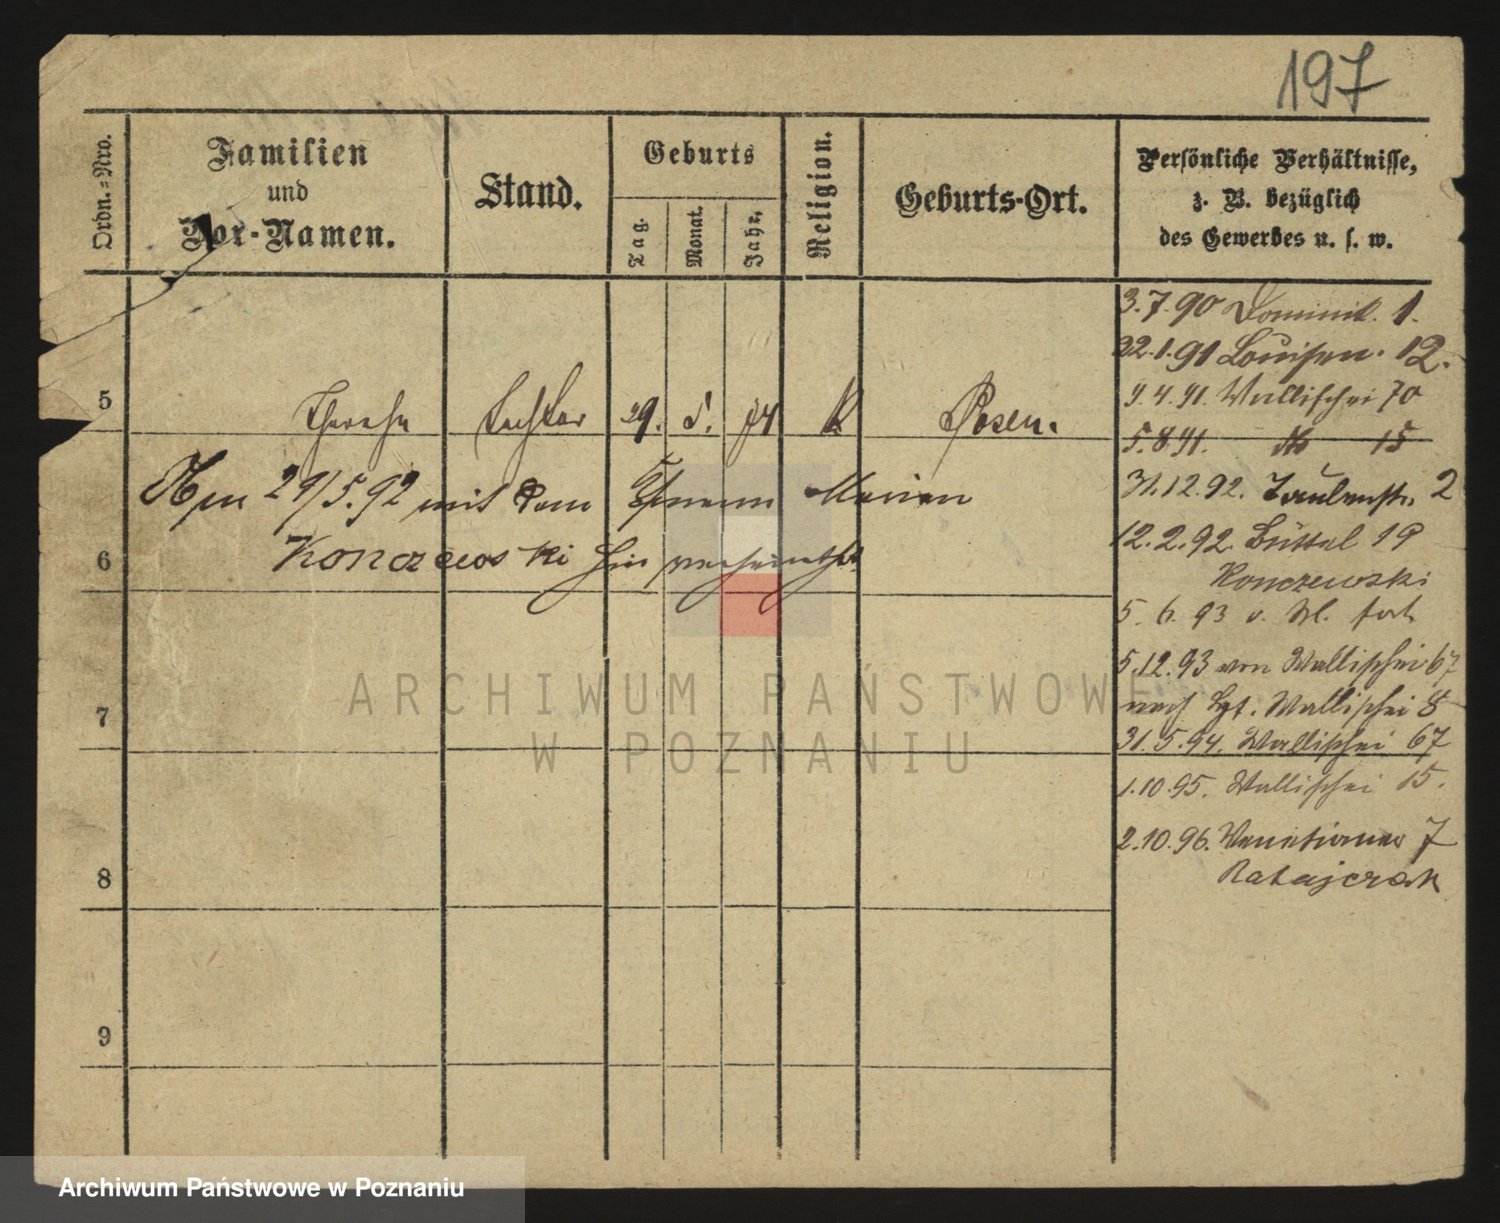 197
Ordn.=Nro.
Familien
und
Vor-Namen.
Stand.
Geburts
Tag.
Monat.
Jahr.
Religion.
Geburts-Ort.
Persönliche Verhältnisse,
z. B. bezüglich
des Gewerbes u. s. w.
3.7.90 Dominik. 1.
22.1.91 Louisen. 12.
9.4.91. Wallischei 70
5 Theresa Tochter 29. 5. 74 K Posen.
5.8.91. do 15
29/5.92 mit dem Marian
31.12.92. Taubenstr. 2
12.2.92. Büttel 19
6 Konczewski hier verheirathet
Konczewski
5. 6. 93 v. W. fort
5.12.93 von Wallischei 67
nach Wallischei 8
7
31.5.94. Wallischei 67
1.10.95. Wallischei 15.
2.10.96. Venetianer 7
8 Ratajczak
9
ARCHIWUM PAŃSTWOWE
W POZNANIU
Archiwum Państwowe w Poznaniu